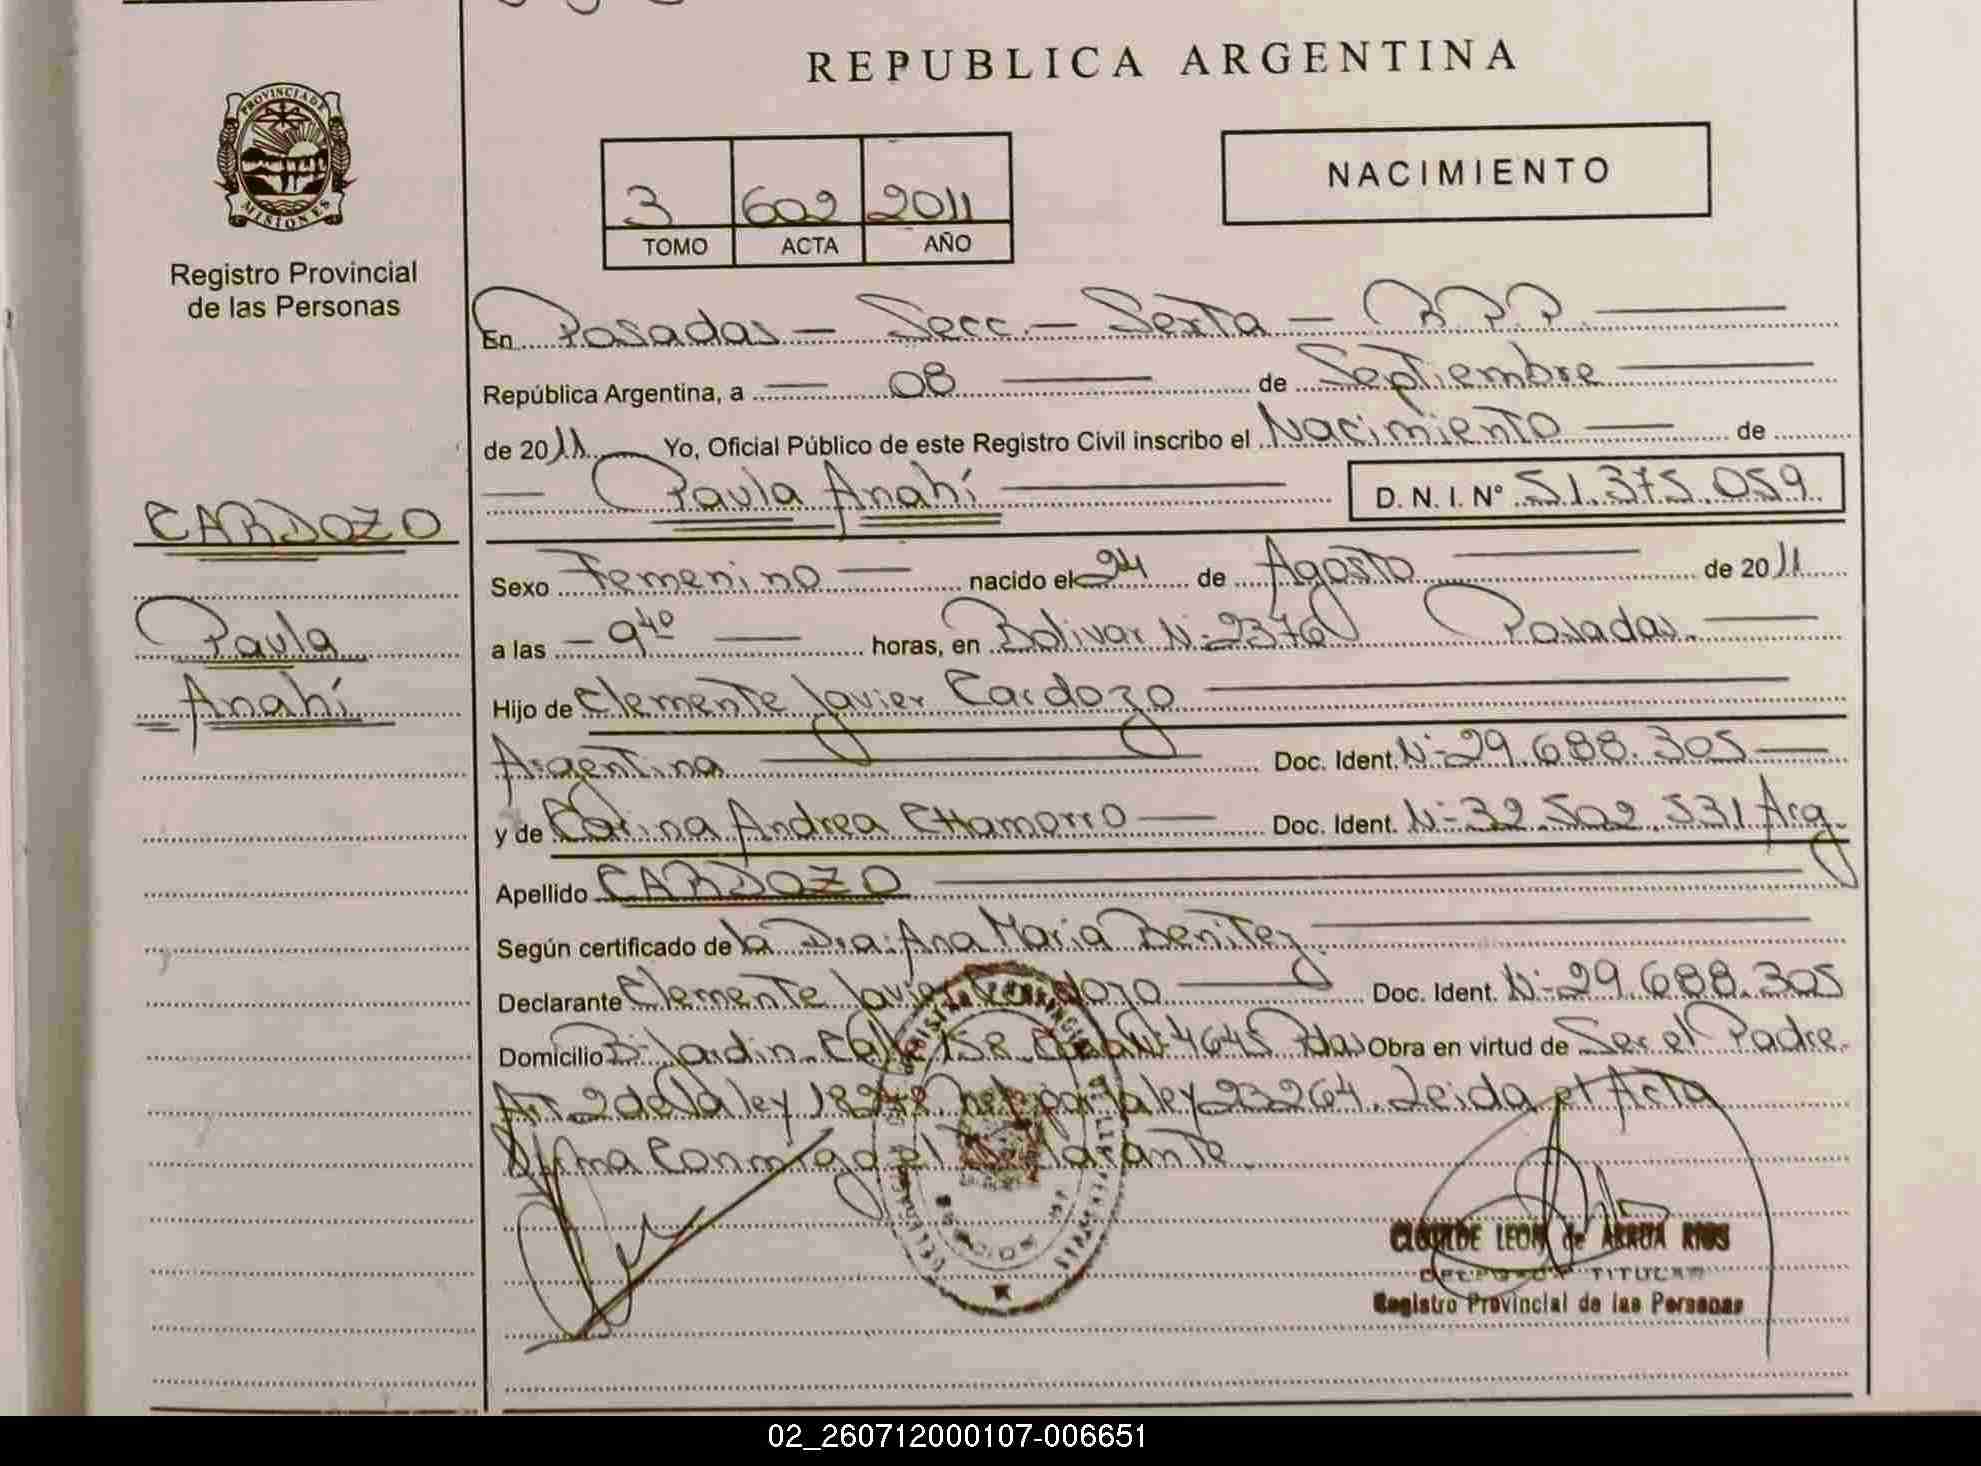 REPUBLICA ARGENTINA
PROVINCIA DE
MISIONES
Registro Provincial
de las Personas
3 602 2011
TOMO ACTA AÑO
NACIMIENTO
En Posadas — Secc. — Sexta — R.P.P.
República Argentina, a — 08 — de Septiembre
de 2011 Yo, Oficial Público de este Registro Civil inscribo el Nacimiento — de
— Paula Anahí — D. N. I. Nº 51.375.059
CARDOZO
Paula
Anahí
Sexo Femenino — nacido el 24 de Agosto — de 2011
a las — 9 40 — horas, en Bolivar Nº 2376 Posadas. —
Hijo de Clemente Javier Cardozo —
Argentina — Doc. Ident. Nº 29.688.305 —
y de Carina Andrea CHamorro — Doc. Ident. Nº 32.502.531 Arg.
Apellido CARDOZO —
Según certificado de la Dra. Ana Maria Benitez —
Declarante Clemente Javier Cardozo — Doc. Ident. Nº 29.688.305
Domicilio Bº Jardin Calle 158 Casa Nº 4645 Pdas Obra en virtud de Ser el Padre.
Art. 2 de la ley 18248 por la ley 23264. Leida el Acta
firma Conmigo el Declarante.
CLOTILDE LEON de ARRUA RIOS
TITULAR
Registro Provincial de las Personas
02_260712000107-006651